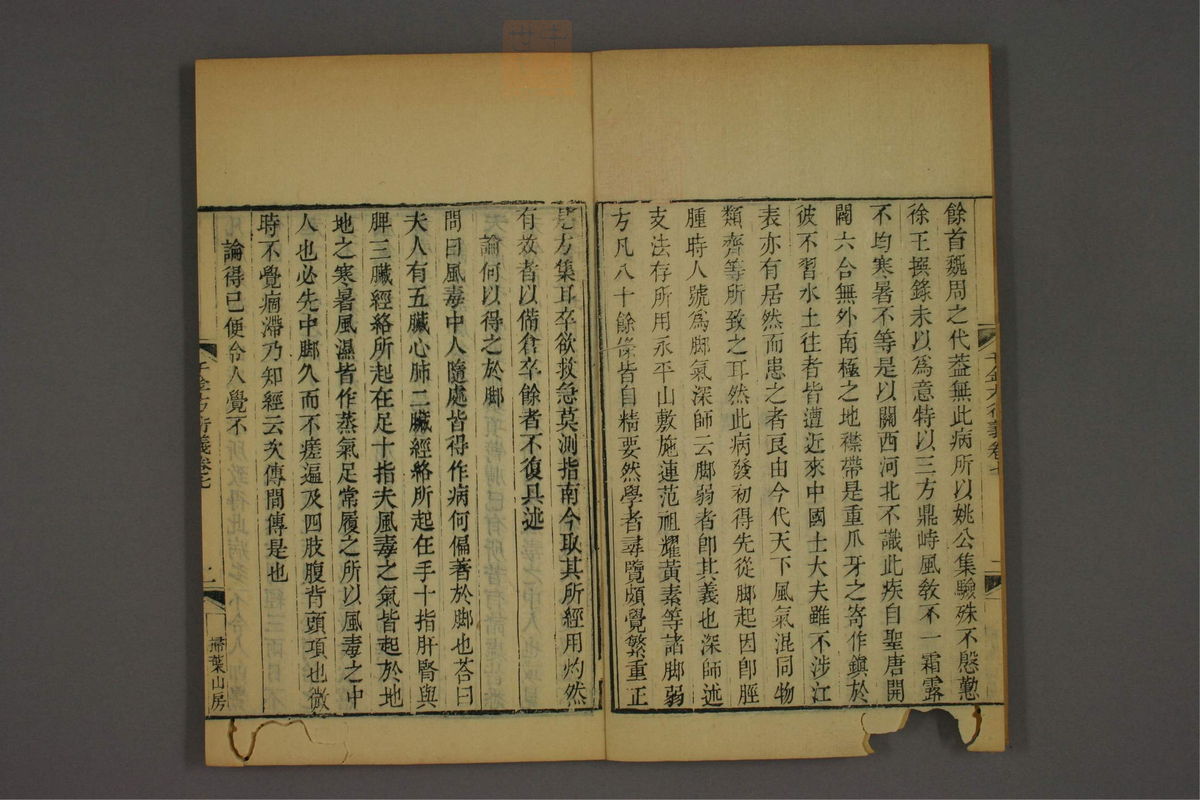 餘首魏周之代葢無此病所以姚公集驗殊不慇懃
徐王撰錄未以爲意特以三方鼎峙風教不一霜露
不均寒暑不等是以關西河北不識此疾自聖唐開
闢六合無外南極之地襟帶是重爪牙之寄作鎭於
彼不習水土往者皆遭近來中國士大夫雖不涉江
表亦有居然而患之者良由今代天下風氣混同物
類齊等所致之耳然此病發初得先從脚起因卽脛
腫時人號爲脚氣深師云脚弱者卽其義也深師述
支法存所用永平山敷施連范祖耀黃素等諸脚弱
方凡八十餘條皆自精要然學者尋覽頗覺繁重正
是方集耳卒欲救急莫測指南今取其所經用灼然
有效者以備倉卒餘者不復具述
論何以得之於脚
問曰風毒中人隨處皆得作病何偏著於脚也荅曰
夫人有五臟心肺二臟經絡所起在手十指肝腎與
脾三臟經絡所起在足十指夫風毒之氣皆起於地
地之寒暑風濕皆作蒸氣足常履之所以風毒之中
人也必先中脚久而不瘥遍及四肢腹背頭項也微
時不覺痼滯乃知經云次傳間傳是也
論得已便令人覺不
千金方衍義卷七
二
掃葉山房